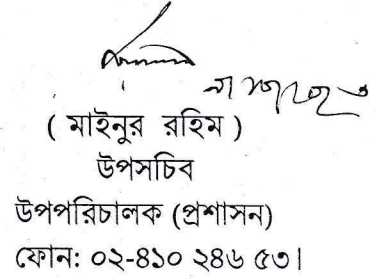 ( মাইনুর রহিম )
উপসচিব
উপপরিচালক (প্রশাসন)
ফোন: ০২-৪১০ ২৪৬ ৫৩।